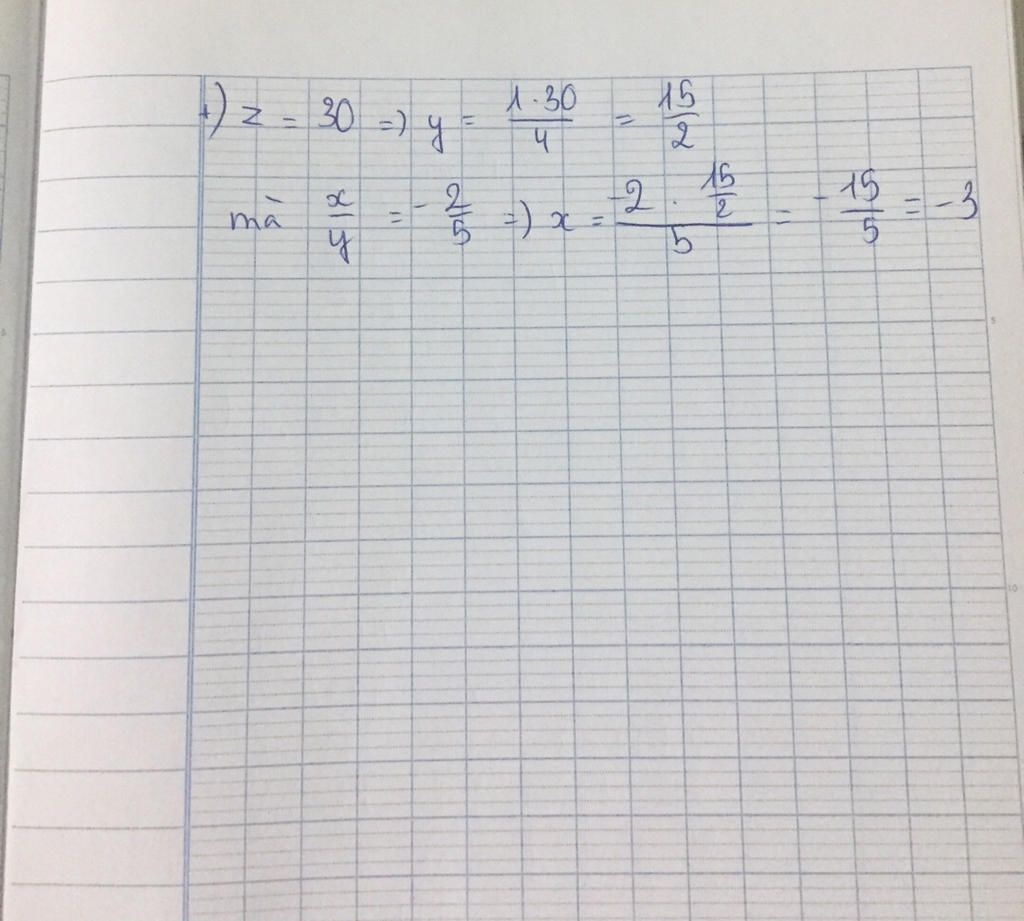 +) z = 30 =) y = \frac{1 \cdot 30}{4} = \frac{15}{2}
mà \frac{x}{y} = -\frac{2}{5} =) x = \frac{-2 \cdot \frac{15}{2}}{5} = -\frac{15}{5} = -3
5
10